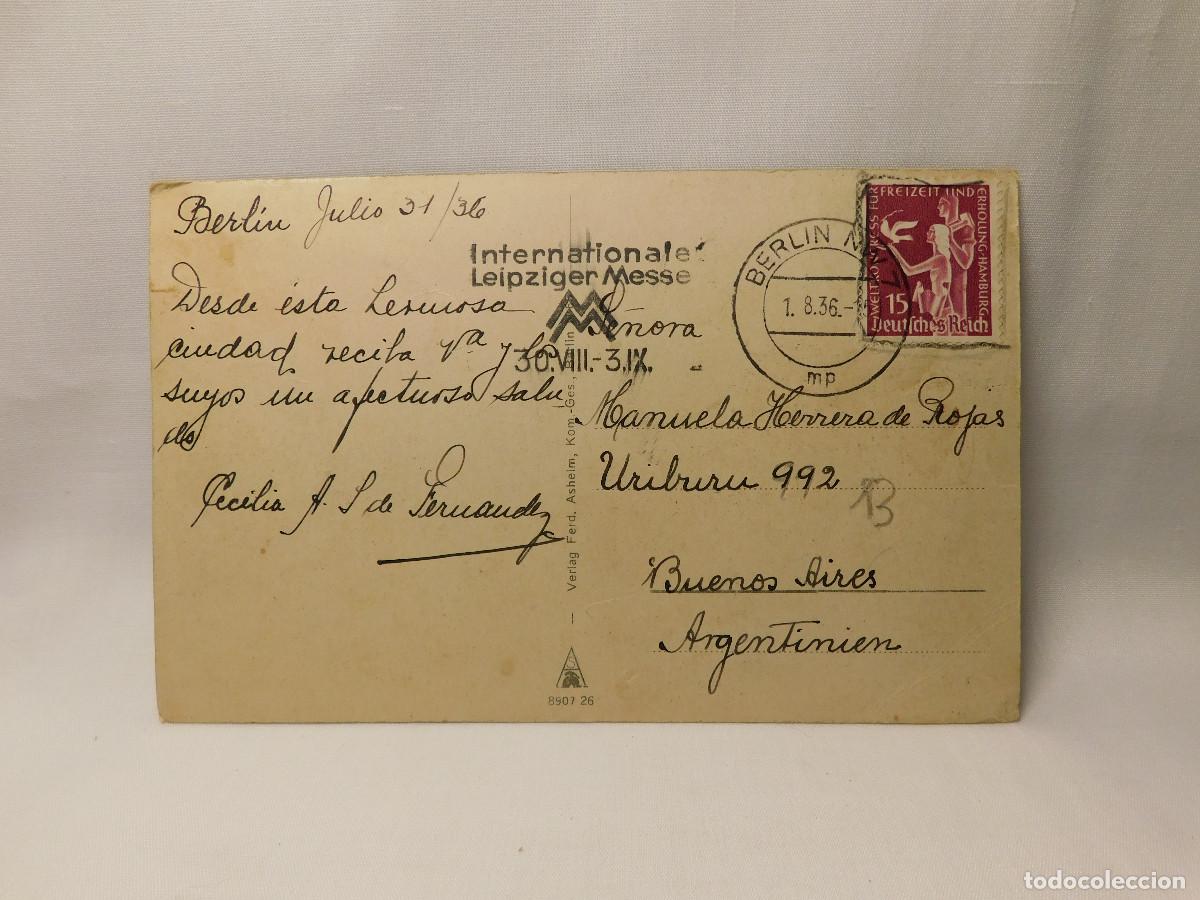 Berlin Julio 31/36
Desde ésta hermosa
ciudad recita Vᵈᵃ y los
suyos un afectuoso salu
do
Cecilia A. S de Fernandez
Internationale
Leipziger Messe
MM
30.VIII.-3.IX.
BERLIN NW 7
1. 8.36.-
mp
WELTKONGRESS FÜR FREIZEIT UND ERHOLUNG·HAMBURG
15
Deutsches Reich
Señora
Manuela Herrera de Rojas
Uriburu 992
B
Buenos Aires
Argentinien
— Verlag Ferd. Ashelm, Kom.-Ges., Berlin
8907 26
todocoleccion